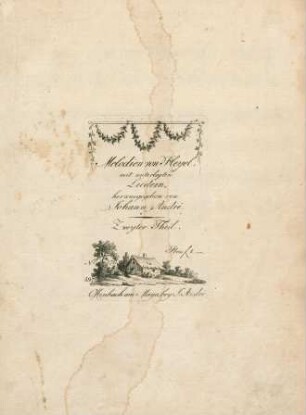 Melodien von Pleyel
mit unterlegten
Liedern,
herausgegeben von
Johann André.
Zweyter Theil.
Offenbach am Mayn bey J. André